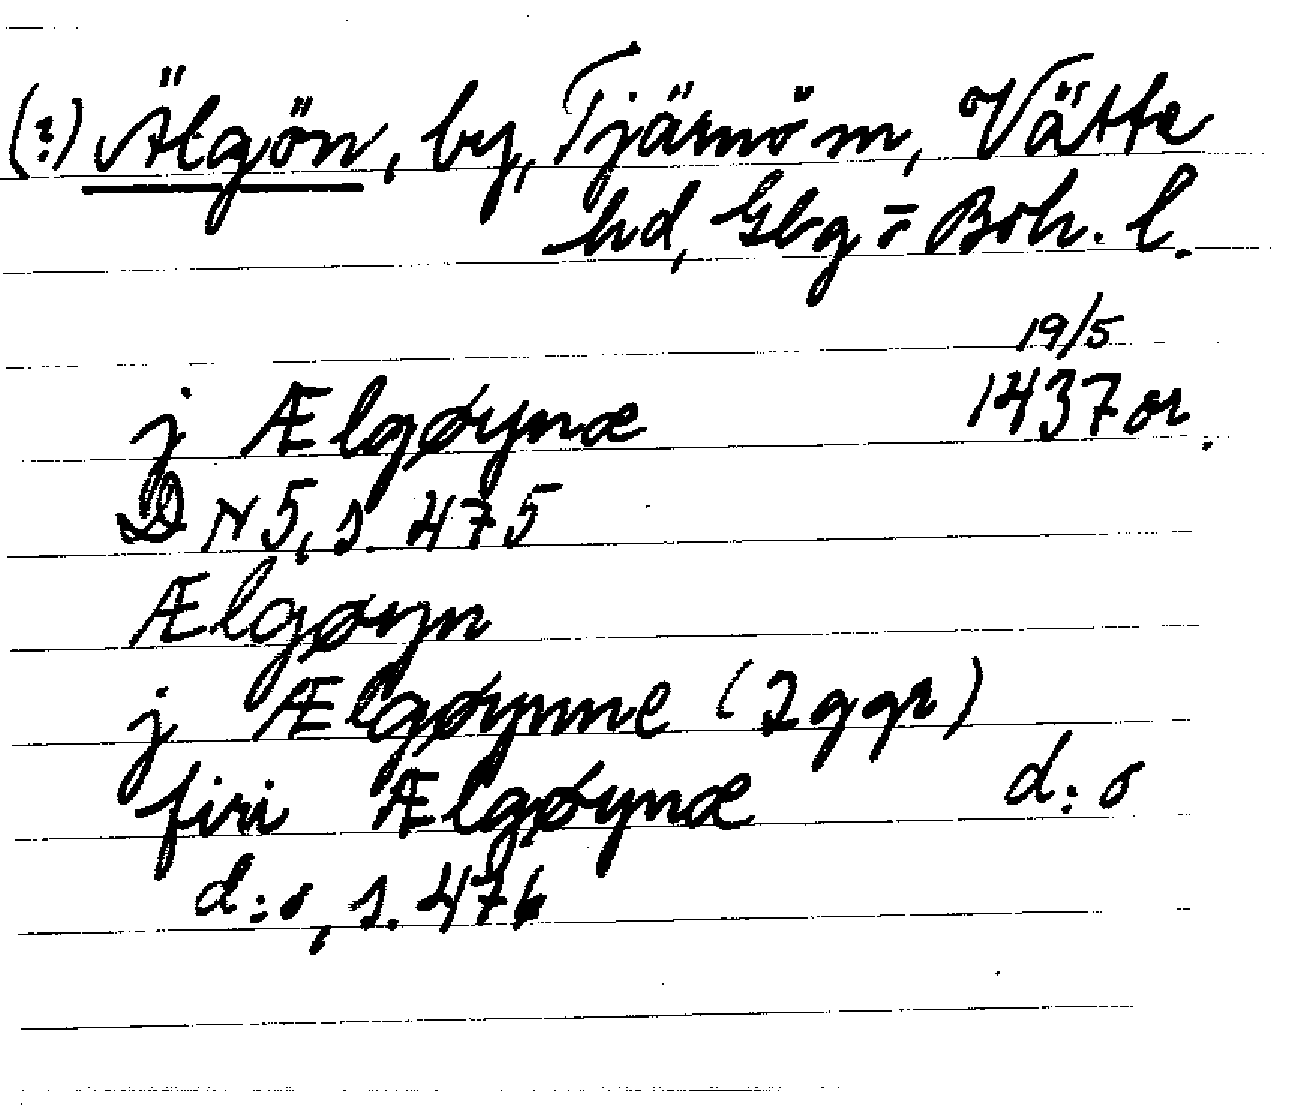 (?) Älgön, by, Tjärnö sn, Vätte
hd, Gbg o Boh. l.
19/5
j Ælgøynæ 1437 or.
DN 5, s. 475
Ælgøyn
j Ælgøynne (2 ggr)
firi Ælgøynæ d:o
d:o, s. 476